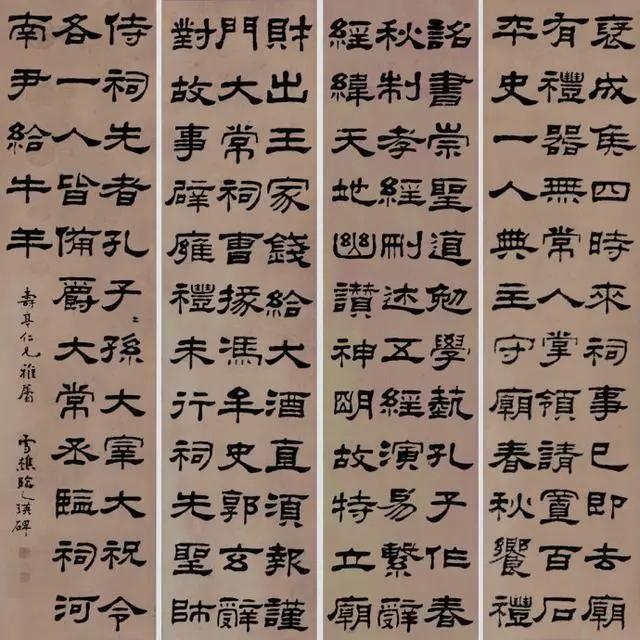 襃成侯四時來祠事已即去廟
有禮器無常人掌領請置百石
卒史一人典主守廟春秋饗禮
詔書崇聖道勉學藝孔子作春
秋制孝經刪述五經演易繫辭
經緯天地幽讚神明故特立廟
財出王家錢給大酒直須報謹
門大常祠曹掾馮牟史郭玄辭
對故事辟廱禮未行祠先聖師
侍祠先者孔子〻孫大宰大祝令
各一人皆備爵大常丞臨祠河
南尹給牛羊
壽仁兄雅屬
雪樵臨乙瑛碑